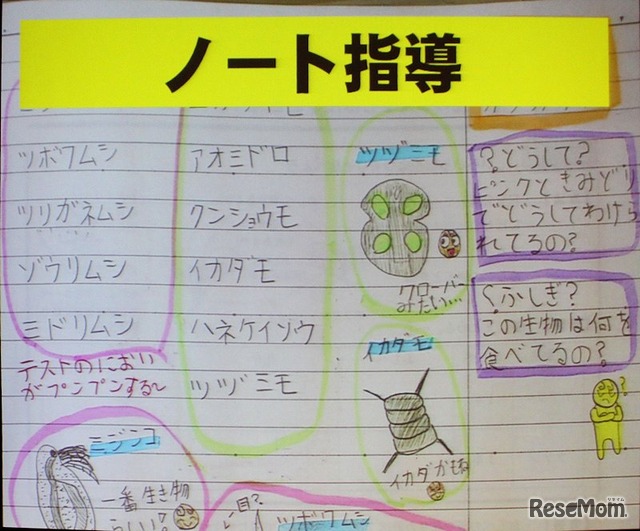 ノート指導
ツボワムシ
ツリガネムシ
ゾウリムシ
ミドリムシ
テストのにおい
がプンプンする〜
アオミドロ
クンショウモ
イカダモ
ハネケイソウ
ツヅミモ
ツヅミモ
クローバー
みたい…
イカダモ
イカダかもね
?どうして?
ピンクときみどり
でどうしてわけら
れてるの?
くふしぎ?
この生物は何を
食べてるの?
?
ミジンコ
一番生き物
ツボワムシ
リセマム
ReseMom.